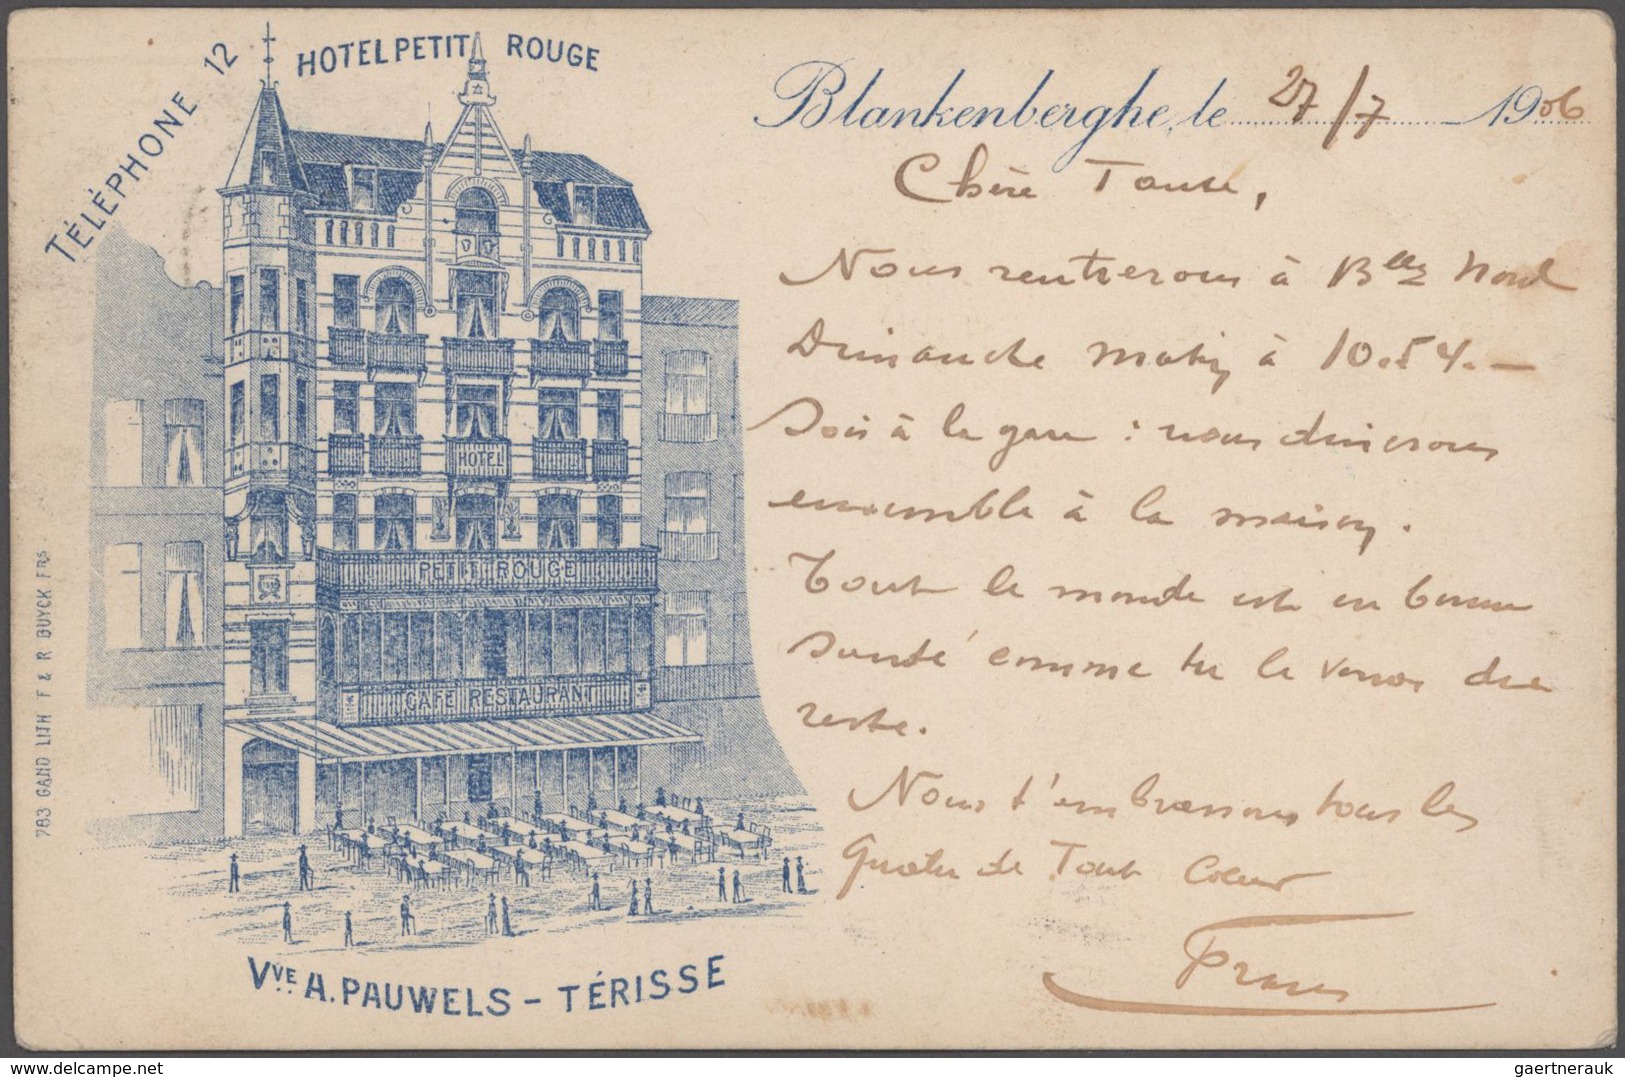 TÉLÉPHONE 12
HOTEL PETIT ROUGE
Blankenberghe, le 27/7 1906
Chère Tante,
Nous rentrerons à Bxlles Nord
Dimanche matin à 10.54. —
Sois à la gare : nous dinerons
ensemble à la maison.
Tout le monde est en bonne
santé comme tu le verras du
reste.
Nous t'embrassons tous les
quatre de Tout Coeur
HOTEL
PETIT ROUGE
CAFE RESTAURANT
783 GAND LITH F & R BUYCK FRS
VVE A. PAUWELS - TÉRISSE
delcampe.net
gaertnerauk